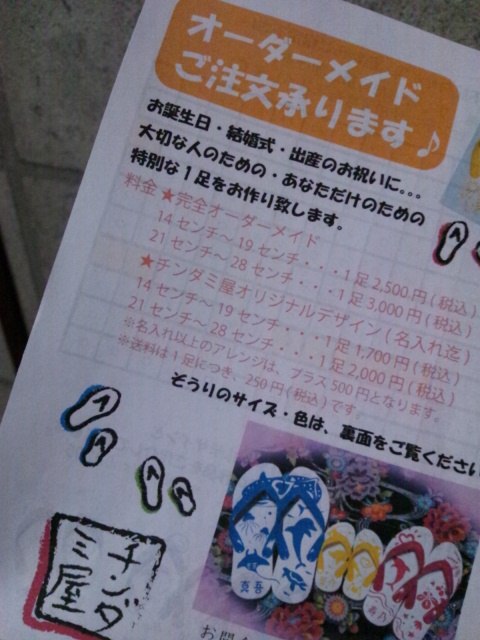 オーダーメイド
ご注文承ります♪
お誕生日・結婚式・出産のお祝いに。。。
大切な人のための・あなただけのための
特別な1足をお作り致します。
料金 ★完全オーダーメイド
14センチ〜19センチ・・・1足2,500円(税込)
21センチ〜28センチ・・・1足3,000円(税込)
★チンダミ屋オリジナルデザイン(名入れ迄)
14センチ〜19センチ・・・1足1,700円(税込)
21センチ〜28センチ・・・1足2,000円(税込)
※名入れ以上のアレンジは、プラス500円となります。
※送料は1足につき、250円(税込)です
ぞうりのサイズ・色は、裏面をご覧ください
チンダ
ミ屋
真吾
お問